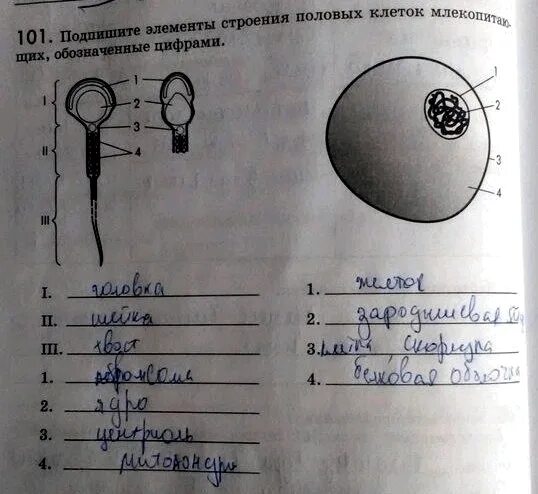 101. Подпишите элементы строения половых клеток млекопитаю-
щих, обозначенные цифрами.
I
II
III
1
2
3
4
1
2
3
4
I. головка
II. шейка
III. хвост
1.
2. ядро
3. центриоль
4. митохондри
1. желток
2. зародышевая
3. скорлупа
4. белковая оболочка